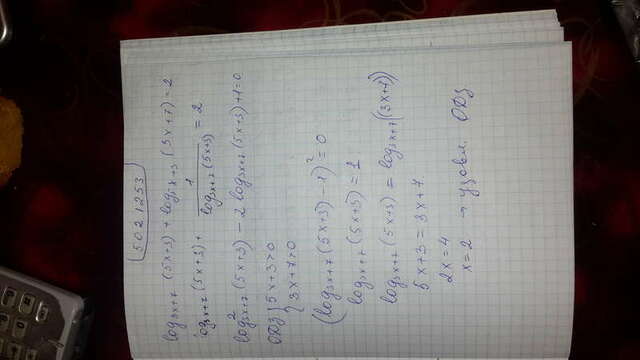 5021253
log₃ₓ₊₇ (5x+3) + log₅ₓ₊₃ (3x+7) = 2
log₃ₓ₊₇ (5x+3) + 1/log₃ₓ₊₇ (5x+3) = 2
log²₃ₓ₊₇ (5x+3) - 2 log₃ₓ₊₇ (5x+3) + 1 = 0
ОДЗ { 5x+3>0
3x+7>0
(log₃ₓ₊₇ (5x+3) - 1)² = 0
log₃ₓ₊₇ (5x+3) = 1
log₃ₓ₊₇ (5x+3) = log₃ₓ₊₇ (3x+7)
5x+3 = 3x+7
2x = 4
x = 2 → удовл. ОДЗ